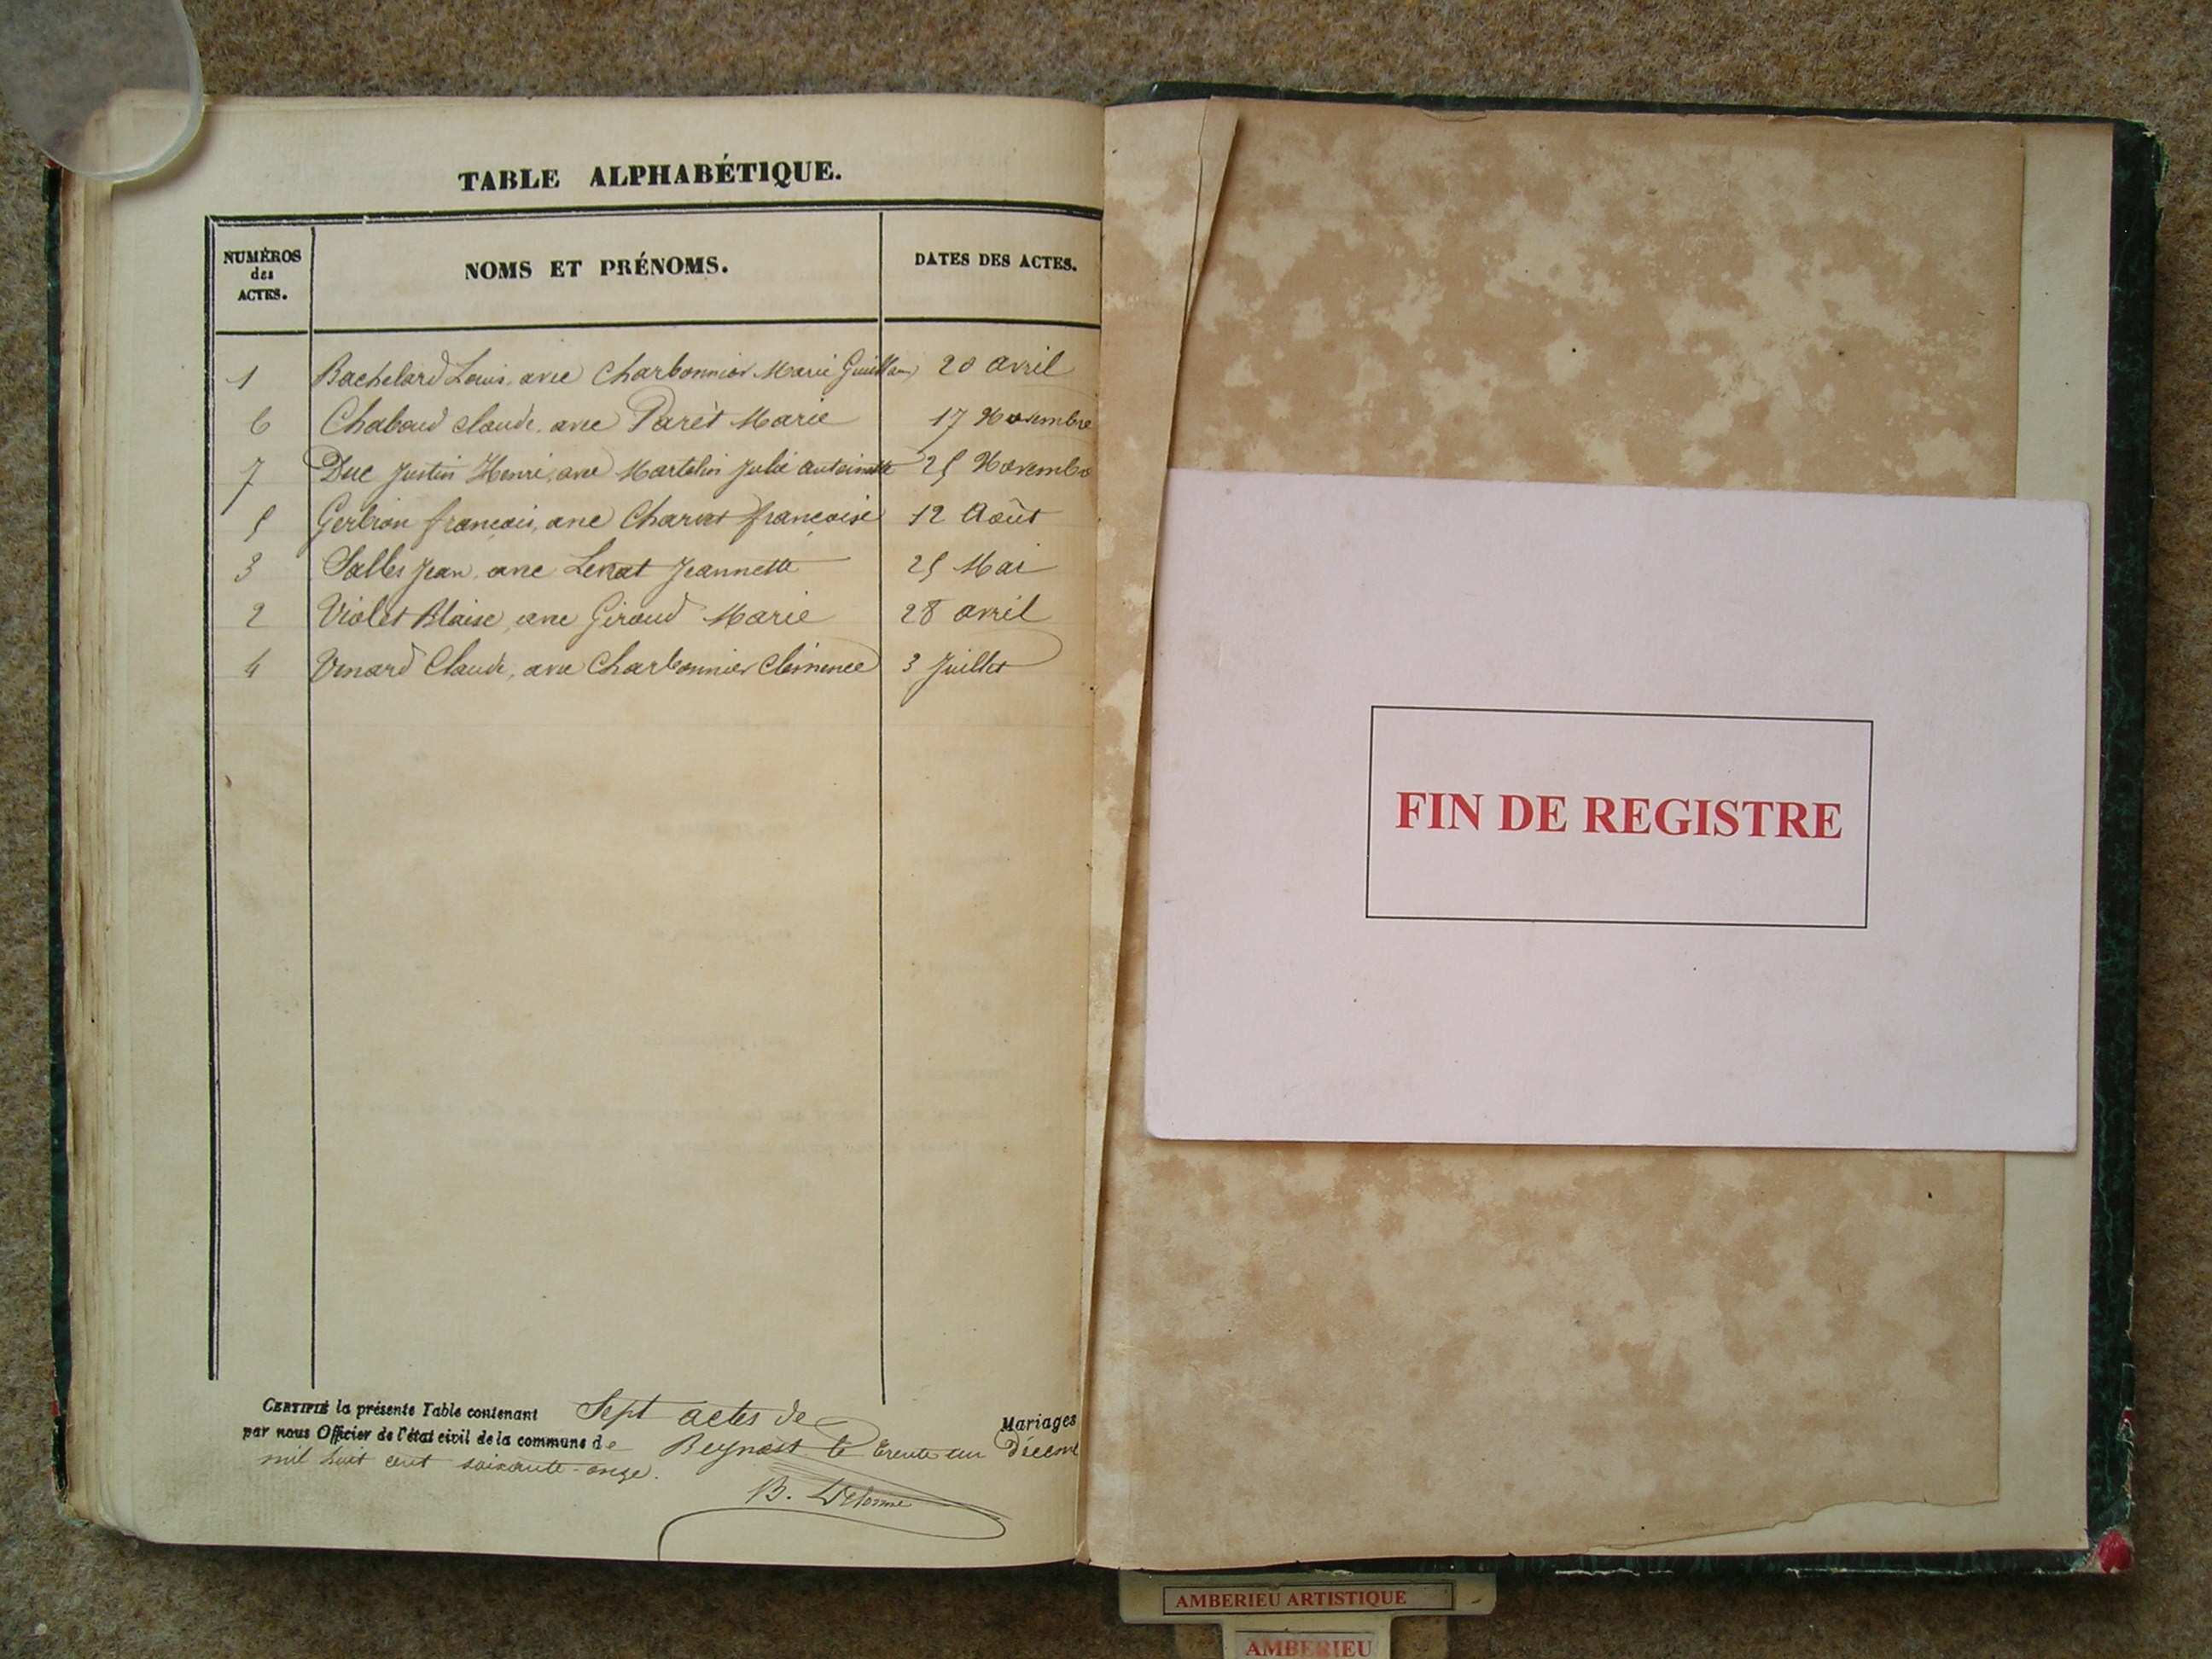 TABLE ALPHABÉTIQUE.
NUMÉROS des ACTES.
NOMS ET PRÉNOMS.
DATES DES ACTES.
1 Bachelard Louis, avec Charbonnier Marie 20 avril
6 Chaboud Claude, avec Paret Marie 17 Novembre
7 Duc Justin Henri, avec Martelin Julie Antoinette 25 Novembre
5 Gerbron françois, avec Charvet françoise 12 Août
3 Salles Jean, avec Lenat Jeannette 25 Mai
2 Violet Blaise, avec Giroud Marie 28 avril
4 Venard Claude, avec Charbonnier Clémence 3 Juillet
CERTIFIÉ la présente Table contenant Sept actes de Mariages
par nous Officier de l'état civil de la commune de Beynost le trente un Décem
mil huit cent soixante-onze.
B. Delorme
FIN DE REGISTRE
AMBERIEU ARTISTIQUE
AMBERIEU